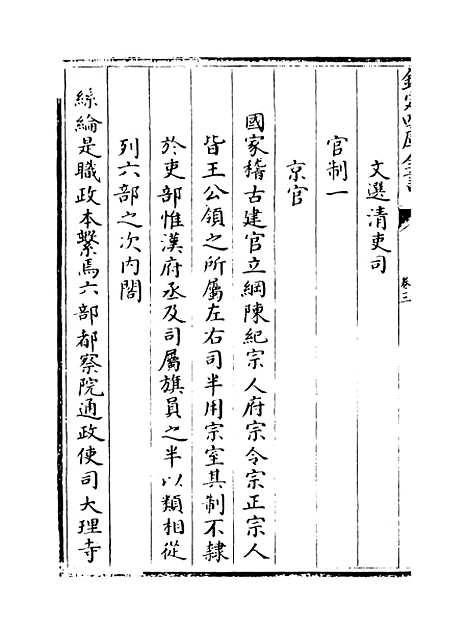 欽定四庫全書
卷三
文選清吏司
官制一
京官
國家稽古建官立綱陳紀宗人府宗令宗正宗人
皆王公領之所屬左右司半用宗室其制不隸
於吏部惟漢府丞及司屬旗員之半以類相從
列六部之次内閣
絲綸是職政本繫焉六部都察院通政使司大理寺